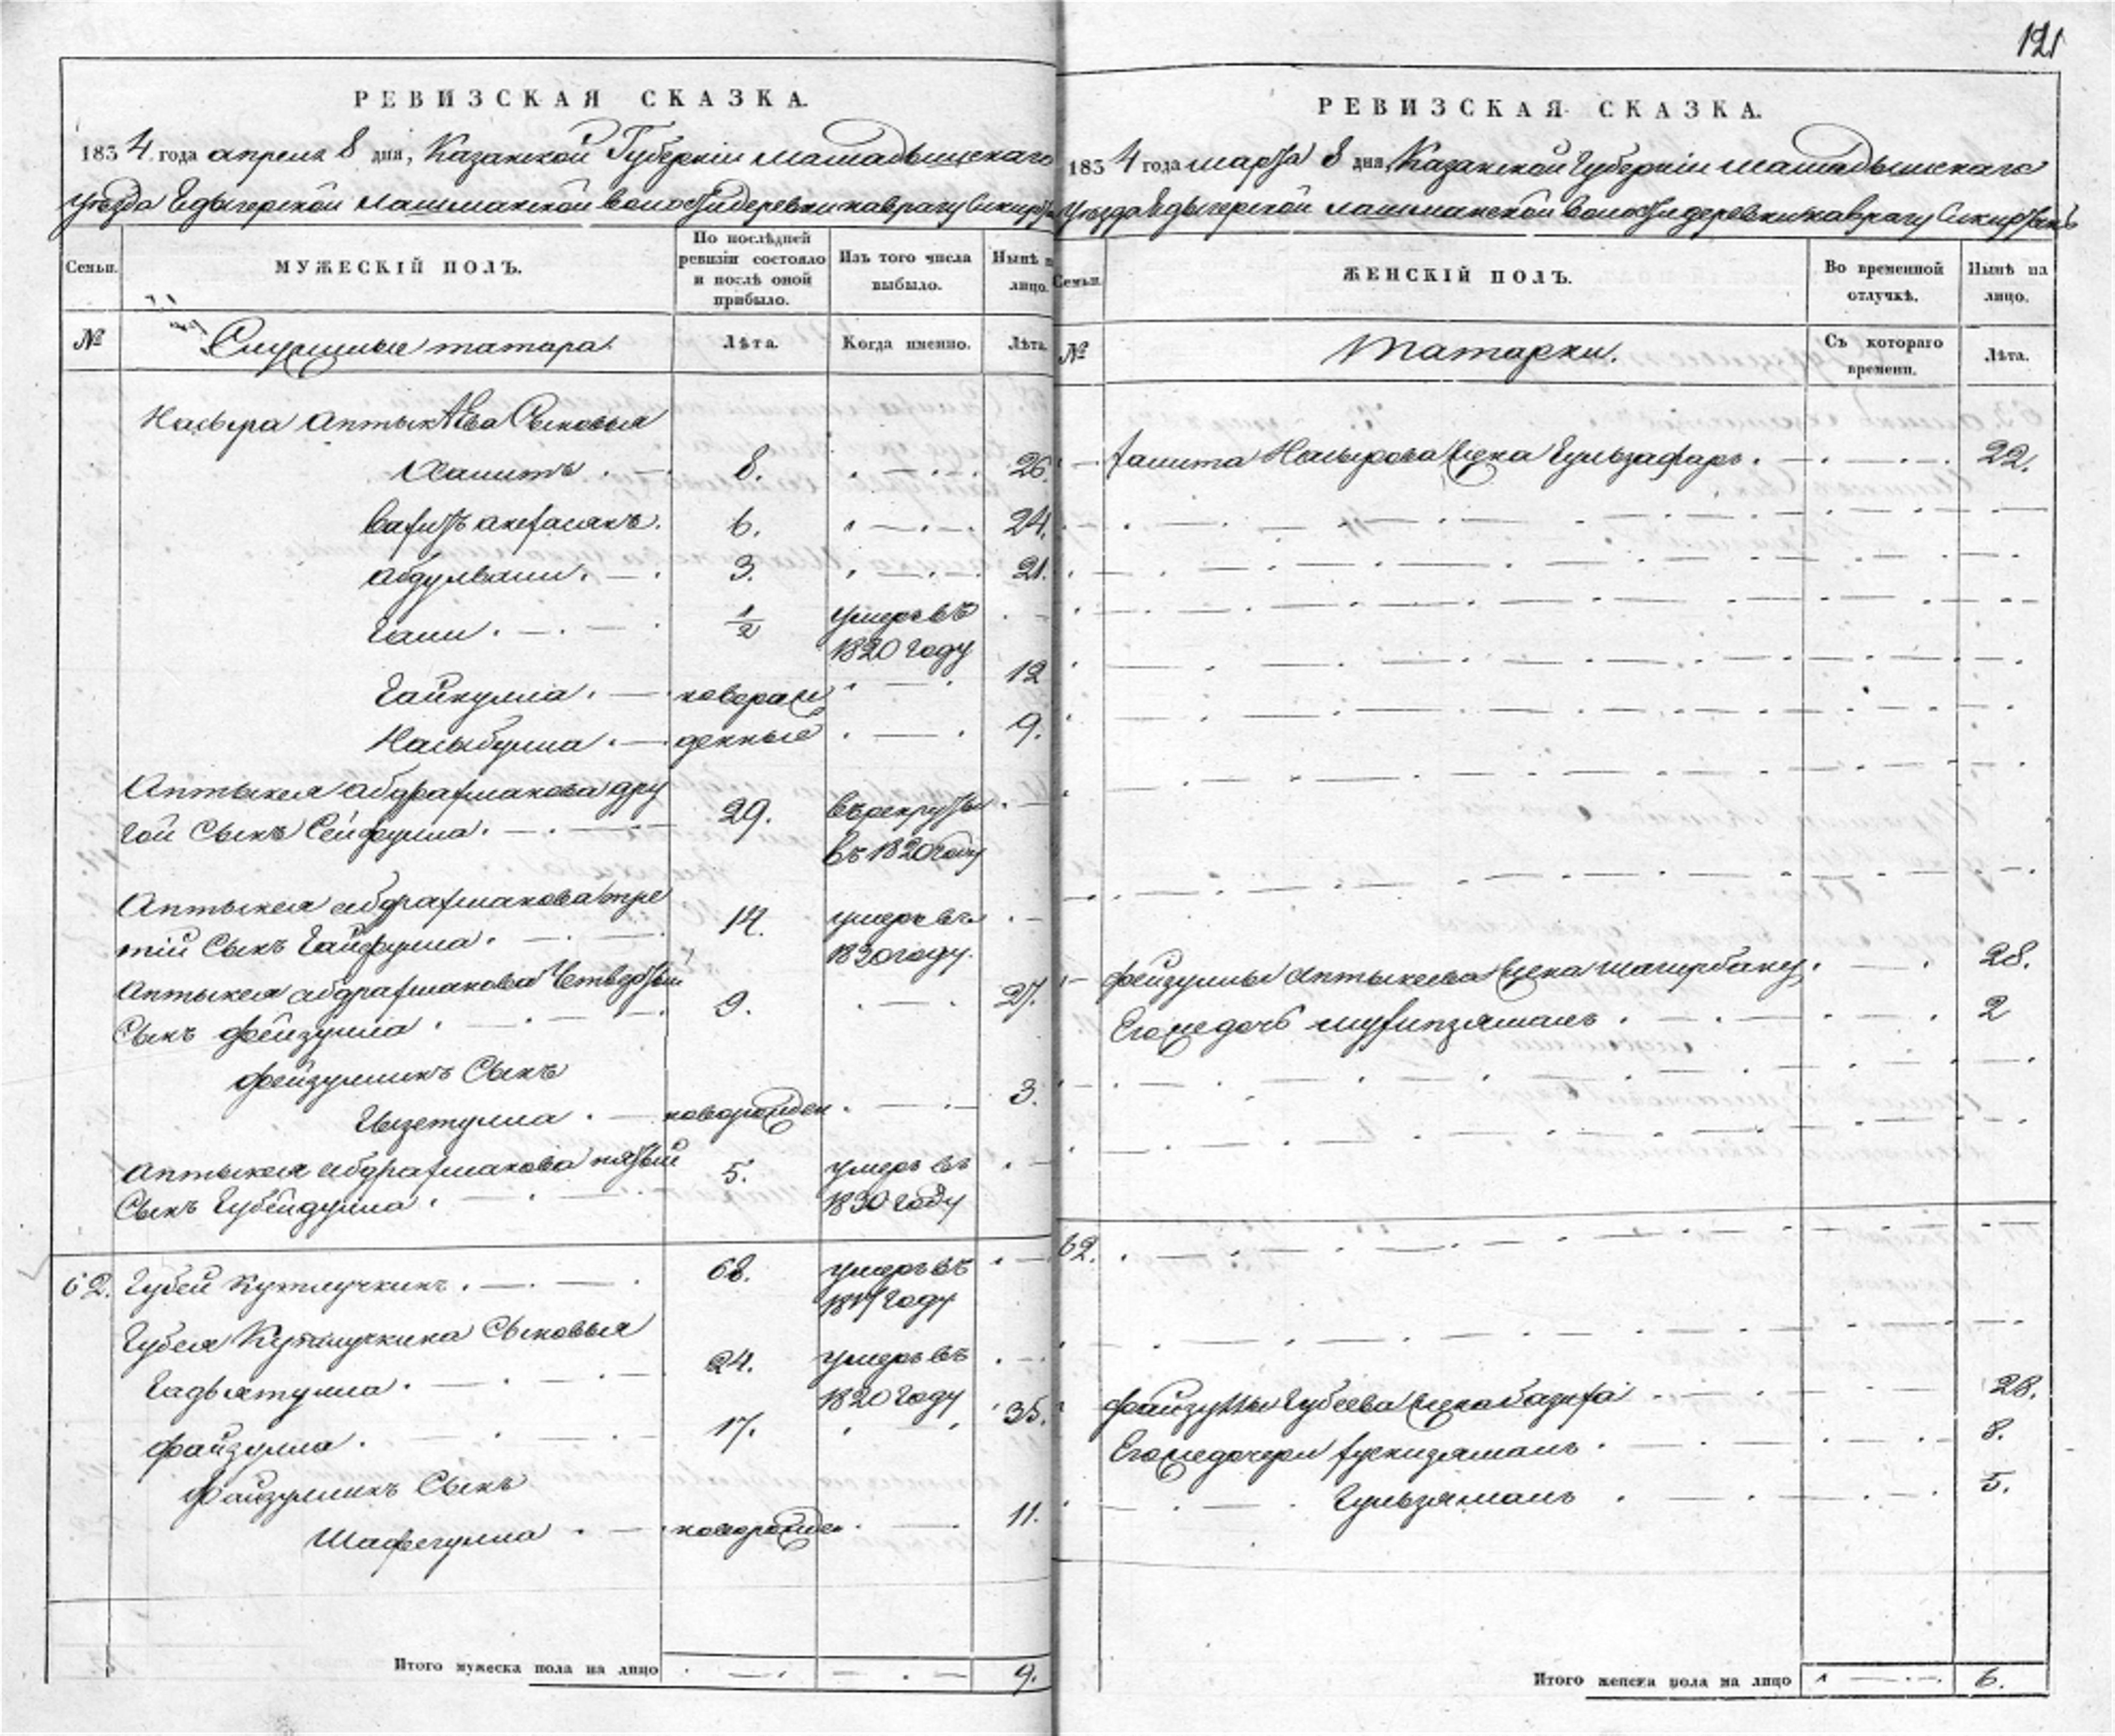 121
РЕВИЗСКАЯ СКАЗКА.
1834 года апреля 8 дня, Казанской Губернiи Мамадышскаго
уезда Едыгерской лашманской волости деревни
Семьи.
МУЖЕСКIЙ ПОЛЪ.
По послѣдней ревизiи состояло и послѣ оной прибыло.
Изъ того числа выбыло.
Нынѣ на лицо.
№
Служилые татара.
Лѣта.
Когда именно.
Лѣта.
Насыра Аптыкѣева Сыновья
Хамитъ 8. 26.
6. 24.
абдулвали. 3. 21.
Гали. 1/2 умеръ въ 1820 году
Гайнулла. новорож 12
Насыбулла. денные 9.
Аптыкея абдрахманова дру
гой Сынъ Сейфулла. 29. въ рекруты въ 1820 году
Аптыкея абдрахманова тре
тiй Сынъ Гайфулла. 14. умеръ въ 1820 году.
Аптыкея абдрахманова Четвертый
Сынъ фейзулла 9. 27.
фейзуллинъ Сынъ
Гызетулла новорожден. 3.
Аптыкея абдрахманова пятый
Сынъ Губейдулла. 5. умеръ въ 1830 году
62. Губей Кутлучкинъ. 68. умеръ въ году
Губея Кутлучкина Сыновья
Гадиятулла. 24. умеръ въ 1820 году
файзулла. 17. 35.
файзуллинъ Сынъ
Шафегулла новорожде 11.
Итого мужеска пола на лицо 9.
РЕВИЗСКАЯ СКАЗКА.
1834 года марта 8 дня, Казанской Губернiи Мамадышскаго
Уезда Едыгерской лашманской волости деревни
Семьи.
ЖЕНСКIЙ ПОЛЪ.
Во временной отлучкѣ.
Нынѣ на лицо.
№
Татарки.
Съ котораго времени.
Лѣта.
Хамита Насырова жена Гульзафаръ. 22.
фейзуллы Аптыкеева жена 28.
Его же дочь 2
62.
файзуллы Губеева жена базифа 28.
Его же дочери 8.
Гульзямалъ 5.
Итого женска пола на лицо 6.